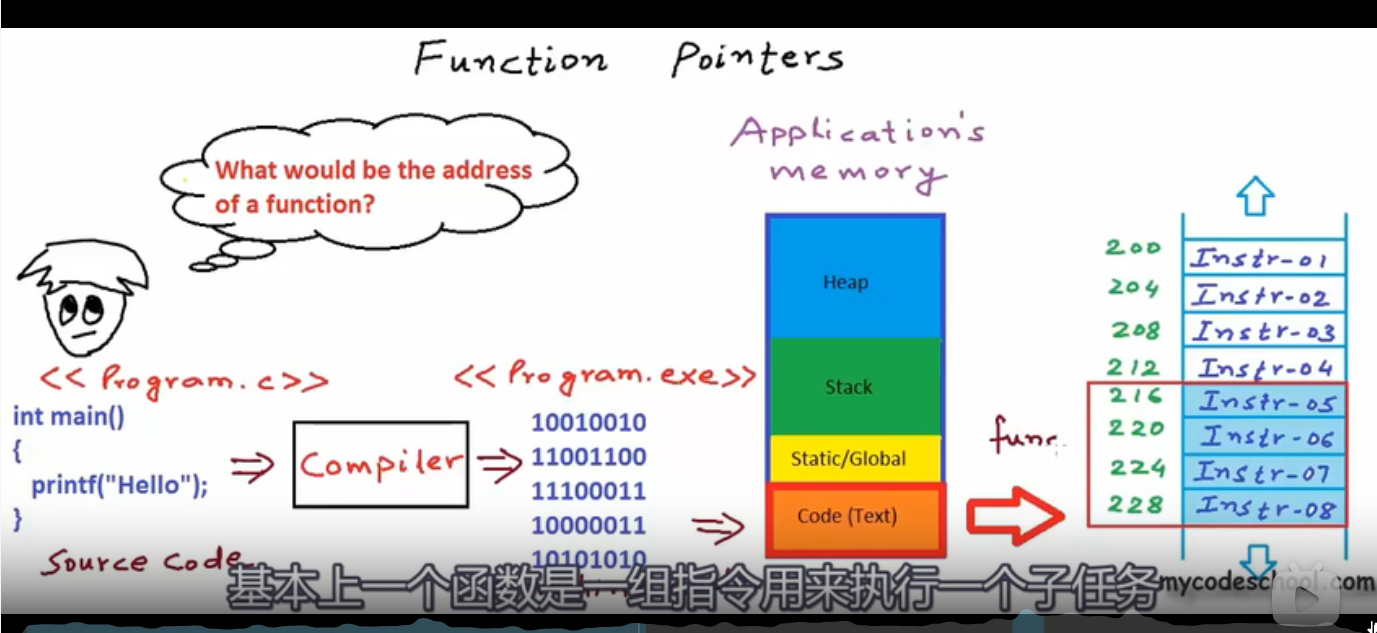 Function Pointers
What would be the address
of a function?
Application's
memory
Heap
Stack
Static/Global
Code (Text)
<< Program.c>>
int main()
{
printf("Hello");
}
Source Code
Compiler
<< Program.exe>>
10010010
11001100
11100011
10000011
10101010
func
200 Instr-01
204 Instr-02
208 Instr-03
212 Instr-04
216 Instr-05
220 Instr-06
224 Instr-07
228 Instr-08
基本上一个函数是一组指令用来执行一个子任务
mycodeschool.com